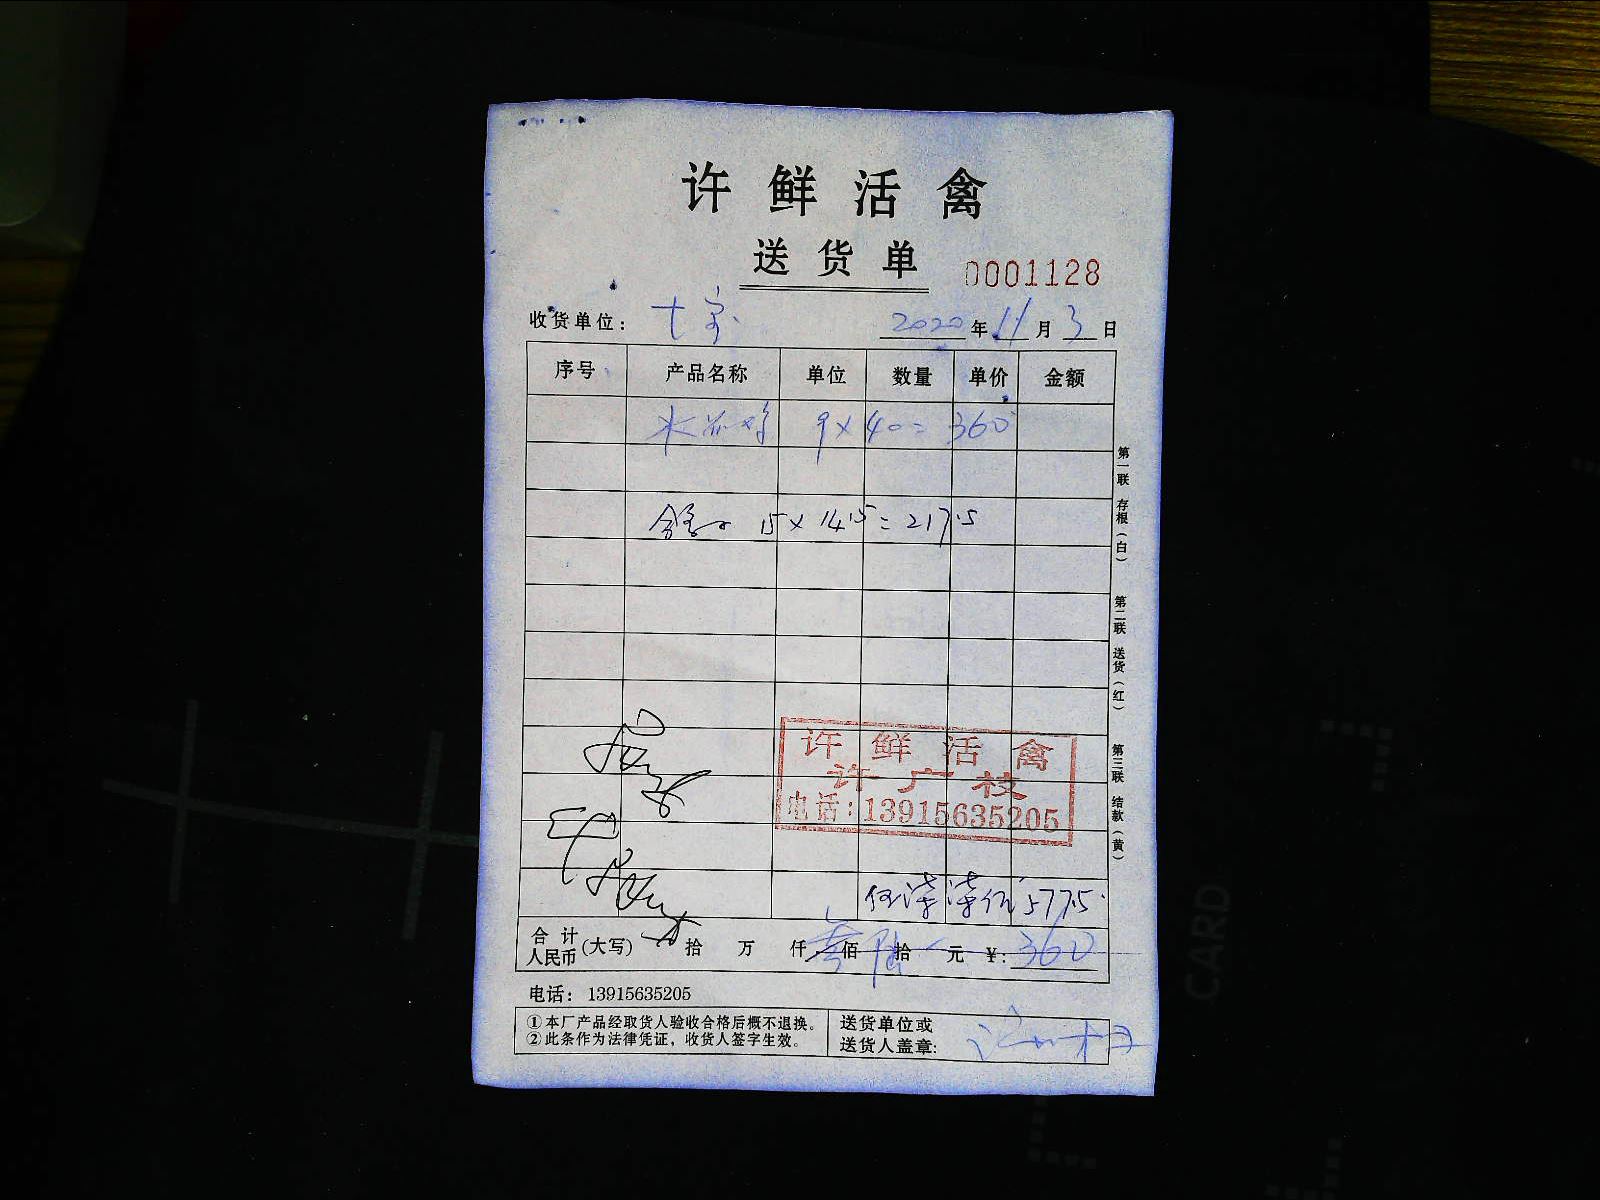 许鲜活禽
送货单
0001128
收货单位： 2020年11月3日
序号 产品名称 单位 数量 单价 金额
9×40=360
15×14.5=217.5
第一联 存根（白）
第二联 送货（红）
第三联 结款（黄）
许鲜活禽
许广枝
电话：13915635205
伍 柒 柒 伍 577.5
合计人民币(大写) 拾 万 仟 叁 佰 陆 拾 元 ¥: 360
电话： 13915635205
①本厂产品经取货人验收合格后概不退换。
②此条作为法律凭证，收货人签字生效。
送货单位或
送货人盖章:
CARD